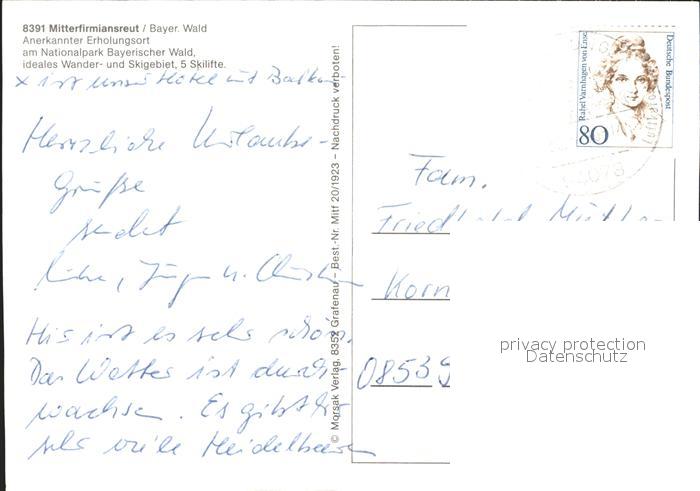 8391 Mitterfirmiansreut / Bayer. Wald
Anerkannter Erholungsort
am Nationalpark Bayerischer Wald,
ideales Wander- und Skigebiet, 5 Skilifte.
x ist unser Hotel mit Balkon
Herzliche Urlaubs-
grüße
sendet
Jürgen u. Christa
Hier ist es sehr schön.
Das Wetter ist durch-
wachsen. Es gibt hier
sehr viele Heidelbeeren
© Morsak Verlag, 8352 Grafenau - Best.-Nr. Mitf 20/1923 – Nachdruck verboten!
Deutsche Bundespost
Rahel Varnhagen von Ense
80
94078
Fam.
Korn
08539
privacy protection
Datenschutz